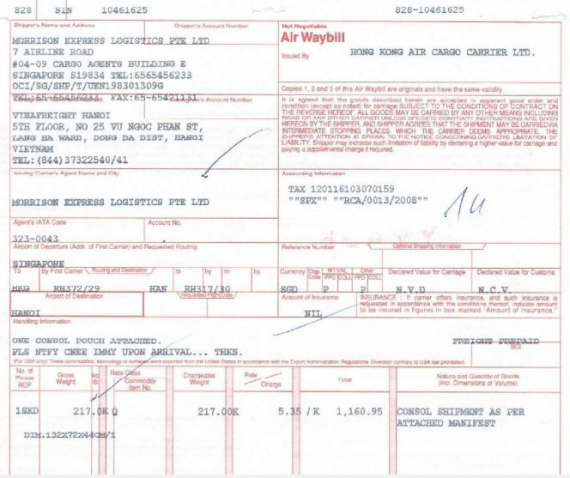 828 SIN 10461625
828-10461625
Shipper's Name and Address
Shipper's Account Number
MORRISON EXPRESS LOGISTICS PTE LTD
7 AIRLINE ROAD
#04-09 CARGO AGENTS BUILDING E
SINGAPORE 819834 TEL:6565456233
OCI/SG/SHP/T/UEN198301309G
FAX:65-65421131
Not Negotiable
Air Waybill
Issued By
HONG KONG AIR CARGO CARRIER LTD.
Copies 1, 2 and 3 of this Air Waybill are originals and have the same validity.
Account Number
VINAFREIGHT HANOI
5TH FLOOR, NO 25 VU NGOC PHAN ST,
LANG HA WARD, DONG DA DIST, HANOI
VIETNAM
TEL:(844)37322540/41
It is agreed that the goods described herein are accepted in apparent good order and
condition (except as noted) for carriage SUBJECT TO THE CONDITIONS OF CONTRACT ON
THE REVERSE HEREOF. ALL GOODS MAY BE CARRIED BY ANY OTHER MEANS INCLUDING
ROAD OR ANY OTHER CARRIER UNLESS SPECIFIC CONTRARY INSTRUCTIONS ARE GIVEN
HEREON BY THE SHIPPER, AND SHIPPER AGREES THAT THE SHIPMENT MAY BE CARRIED VIA
INTERMEDIATE STOPPING PLACES WHICH THE CARRIER DEEMS APPROPRIATE. THE
SHIPPER'S ATTENTION IS DRAWN TO THE NOTICE CONCERNING CARRIER'S LIMITATION OF
LIABILITY. Shipper may increase such limitation of liability by declaring a higher value for carriage and
paying a supplemental charge if required.
Issuing Carrier's Agent Name and City
MORRISON EXPRESS LOGISTICS PTE LTD
Accounting Information
TAX 120116103070159
""SPX"" ""RCA/0013/2008""
Agent's IATA Code
Account No.
323-0043
Airport of Departure (Addr. of First Carrier) and Requested Routing
SINGAPORE
Reference Number
Optional Shipping Information
To By First Carrier Routing and Destination to by to by
HKG RH372/29 HAN RH317/30
Currency Chgs Code WT/VAL Other
PPD COLL PPD COLL
Declared Value for Carriage
Declared Value for Customs
SGD P P N.V.D N.C.V.
Airport of Destination
Requested Flight/Date
HANOI
Amount of Insurance
NIL
INSURANCE : If carrier offers insurance, and such insurance is
requested in accordance with the conditions thereof, indicate amount
to be insured in figures in box marked "Amount of Insurance."
Handling Information
ONE CONSOL POUCH ATTACHED.
PLS NTFY CNEE IMMY UPON ARRIVAL... THKS.
FREIGHT PREPAID
SCI
No. of Pieces RCP
Gross Weight
kg lb
Rate Class
Commodity Item No.
Chargeable Weight
Rate Charge
Total
Nature and Quantity of Goods
(incl. Dimensions or Volume)
1SKD 217.0K Q 217.00K 5.35 /K 1,160.95 CONSOL SHIPMENT AS PER
ATTACHED MANIFEST
DIM.132X72X44CM/1